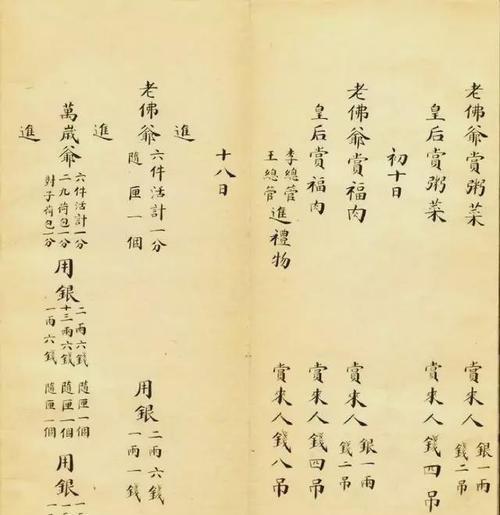 老佛爺賞粥菜 賞來人 銀一兩 錢二吊
皇后賞粥菜 賞來人錢四吊
初十日
老佛爺賞福肉 賞來人 銀一兩 錢二吊
皇后賞福肉 賞來人錢四吊
李總管 王總管 進禮物 賞來人錢八吊
十八日
進
老佛爺 六件活計一分 隨匣一個 用銀 二兩六錢 一兩一錢
進
萬歲爺 六件活計一分 二九荷包一分 對子荷包一分 用銀 二兩六錢 十三兩六錢 一兩六錢 隨匣一個 隨匣一個 隨匣一個 用銀
進